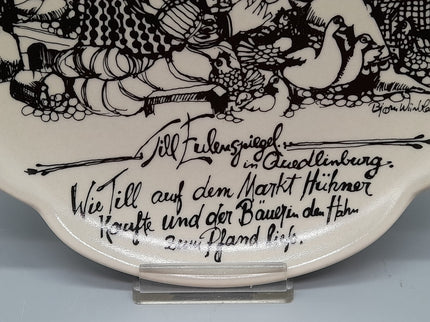 Bjørn Wiinblad
Till Eulenspiegel
in Quedlinburg.
Wie Till auf dem Markt Hühner
Kaufte und der Bäuerin den Hahn
zum Pfand ließ.